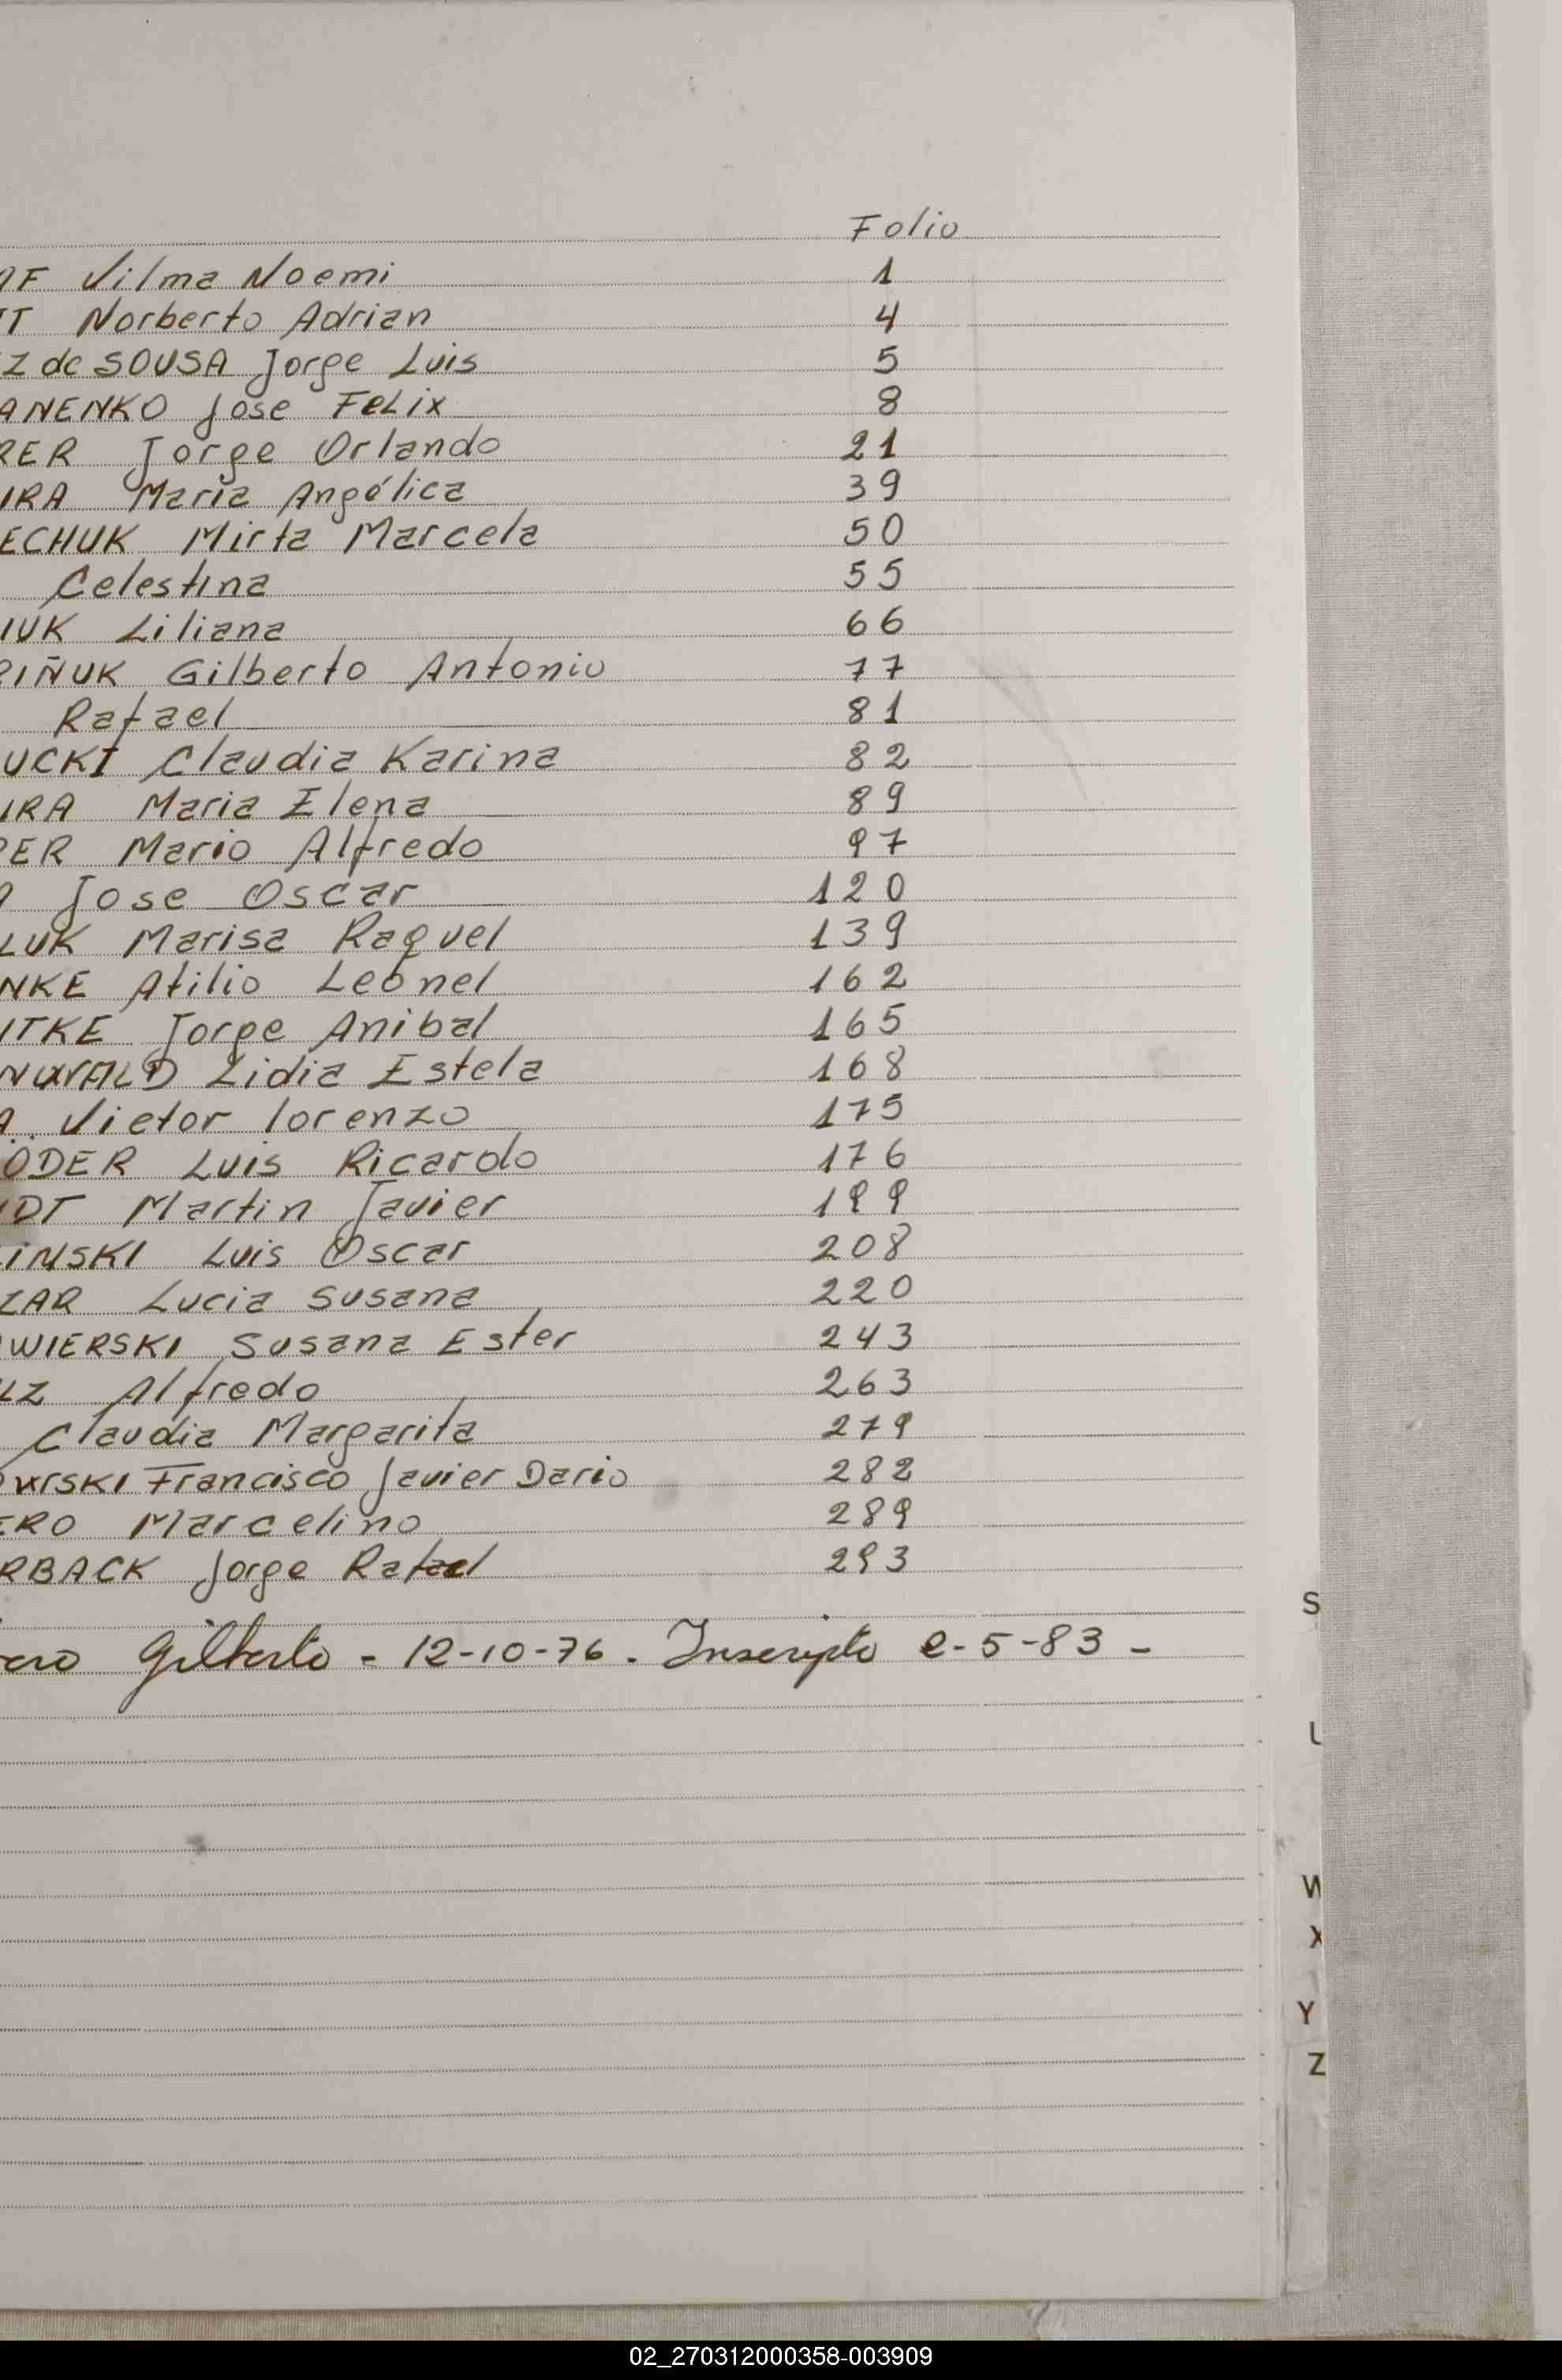 Folio
AF Vilma Noemi 1
TT Norberto Adrian 4
EZ de SOUSA Jorge Luis 5
ANENKO Jose FELIX 8
RER Jorge Orlando 21
IRA Maria Angélica 39
ECHUK Mirta Marcela 50
Celestina 55
IUK Liliana 66
RIÑUK Gilberto Antonio 77
Rafael 81
UCKI Claudia Karina 82
IRA Maria Elena 89
PER Mario Alfredo 97
A Jose Oscar 120
LUK Marisa Raquel 139
NKE Atilio Leonel 162
ITKE Jorge Anibal 165
NWALD Lidia Estela 168
A Victor lorenzo 175
ÖDER Luis Ricardo 176
IDT Martin Javier 199
LINSKI Luis Oscar 208
ZAR Lucia Susana 220
OWIERSKI Susana Ester 243
LZ Alfredo 263
Claudia Margarita 279
OWISKI Francisco Javier Dario 282
ERO Marcelino 289
RBACK Jorge Rafael 293
ero Gilberto - 12-10-76. Inscripto 2-5-83 -
S
U
W
X
Y
Z
02_270312000358-003909